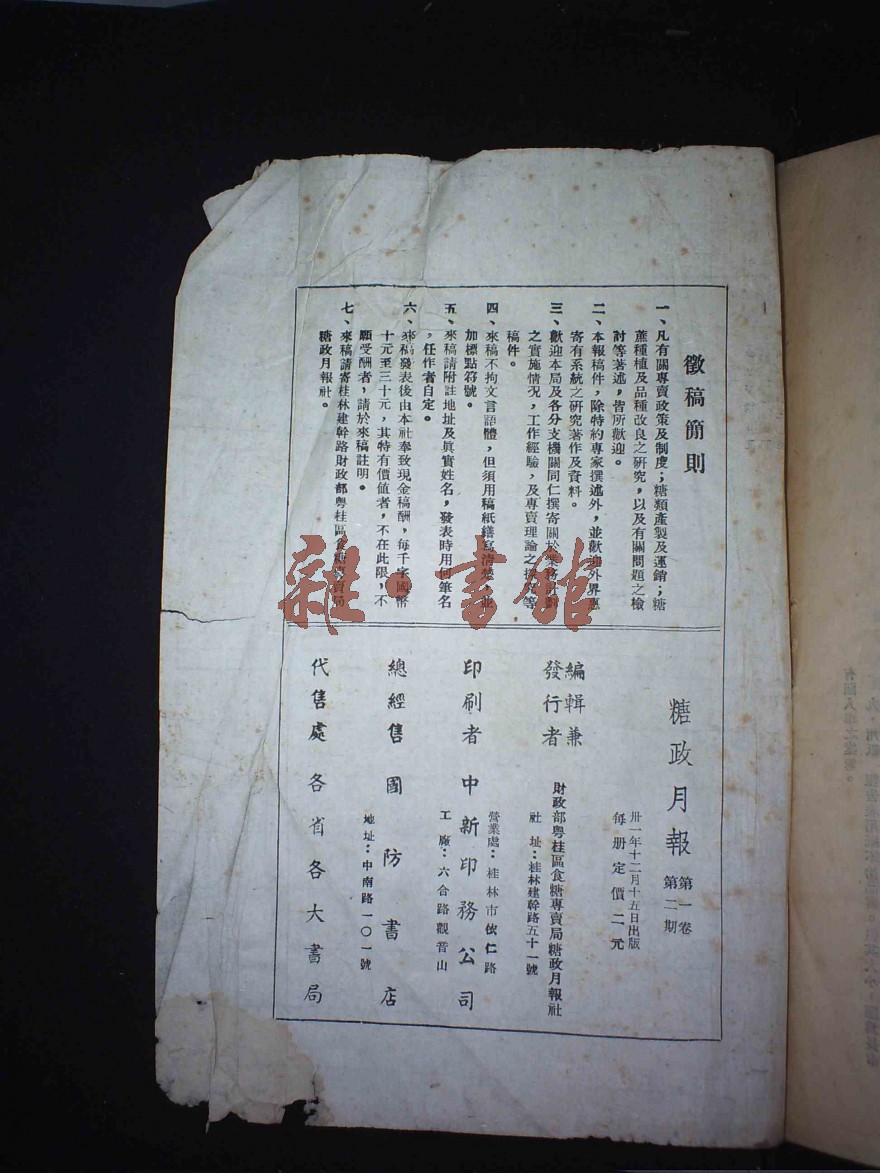 徵稿簡則
一、凡有關專賣政策及制度；糖類產製及運銷；糖
蔗種植及品種改良之研究，以及有關問題之檢
討等著述，皆所歡迎。
二、本報稿件，除特約專家撰述外，並歡迎外界惠
寄有系統之研究著作及資料。
三、歡迎本局及各分支機關同仁撰寄關於業務計劃
之實施情况，工作經驗，及專賣理論之探究等
稿件。
四、來稿不拘文言語體，但須用稿紙繕寫清楚，並
加標點符號。
五、來稿請附註地址及眞實姓名，發表時用何筆名
，任作者自定。
六、來稿發表後由本社奉致現金稿酬，每千字國幣
十元至三十元，其特有價值者，不在此限，不
願受酬者，請於來稿註明。
七、來稿請寄桂林建幹路財政部粤桂區食糖專賣局
糖政月報社。
糖政月報 第一卷
第二期
卅一年十二月十五日出版
每册定價二元
編輯兼
發行者 財政部粤桂區食糖專賣局糖政月報社
社址：桂林建幹路五十一號
印刷者 中新印務公司
營業處：桂林市依仁路
工廠：六合路觀音山
總經售 國防書店
地址：中南路一〇一號
代售處 各省各大書局
雜·書館